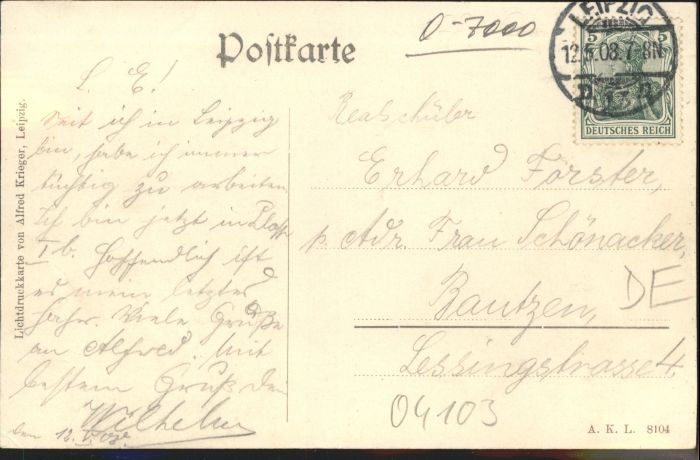 Postkarte
O-7000
LEIPZIG
12.5.08.7-8N.
5 5
DEUTSCHES REICH
L. E!
Seit ich in Leipzig
bin, habe ich immer
tüchtig zu arbeiten.
Ich bin jetzt in Klasse
I b. Hoffendlich ist
es mein letztes
Jahr. Viele Grüße
an Alfred. Mit
bestem Gruß Dein
Wilhelm
den 12. V. 08.
Realschüler
Erhard Förster,
p. Adr. Frau Schönacker,
Bautzen,
Lessingstrasse 4
DE
04103
Lichtdruckkarte von Alfred Krieger, Leipzig.
A. K. L. 8104